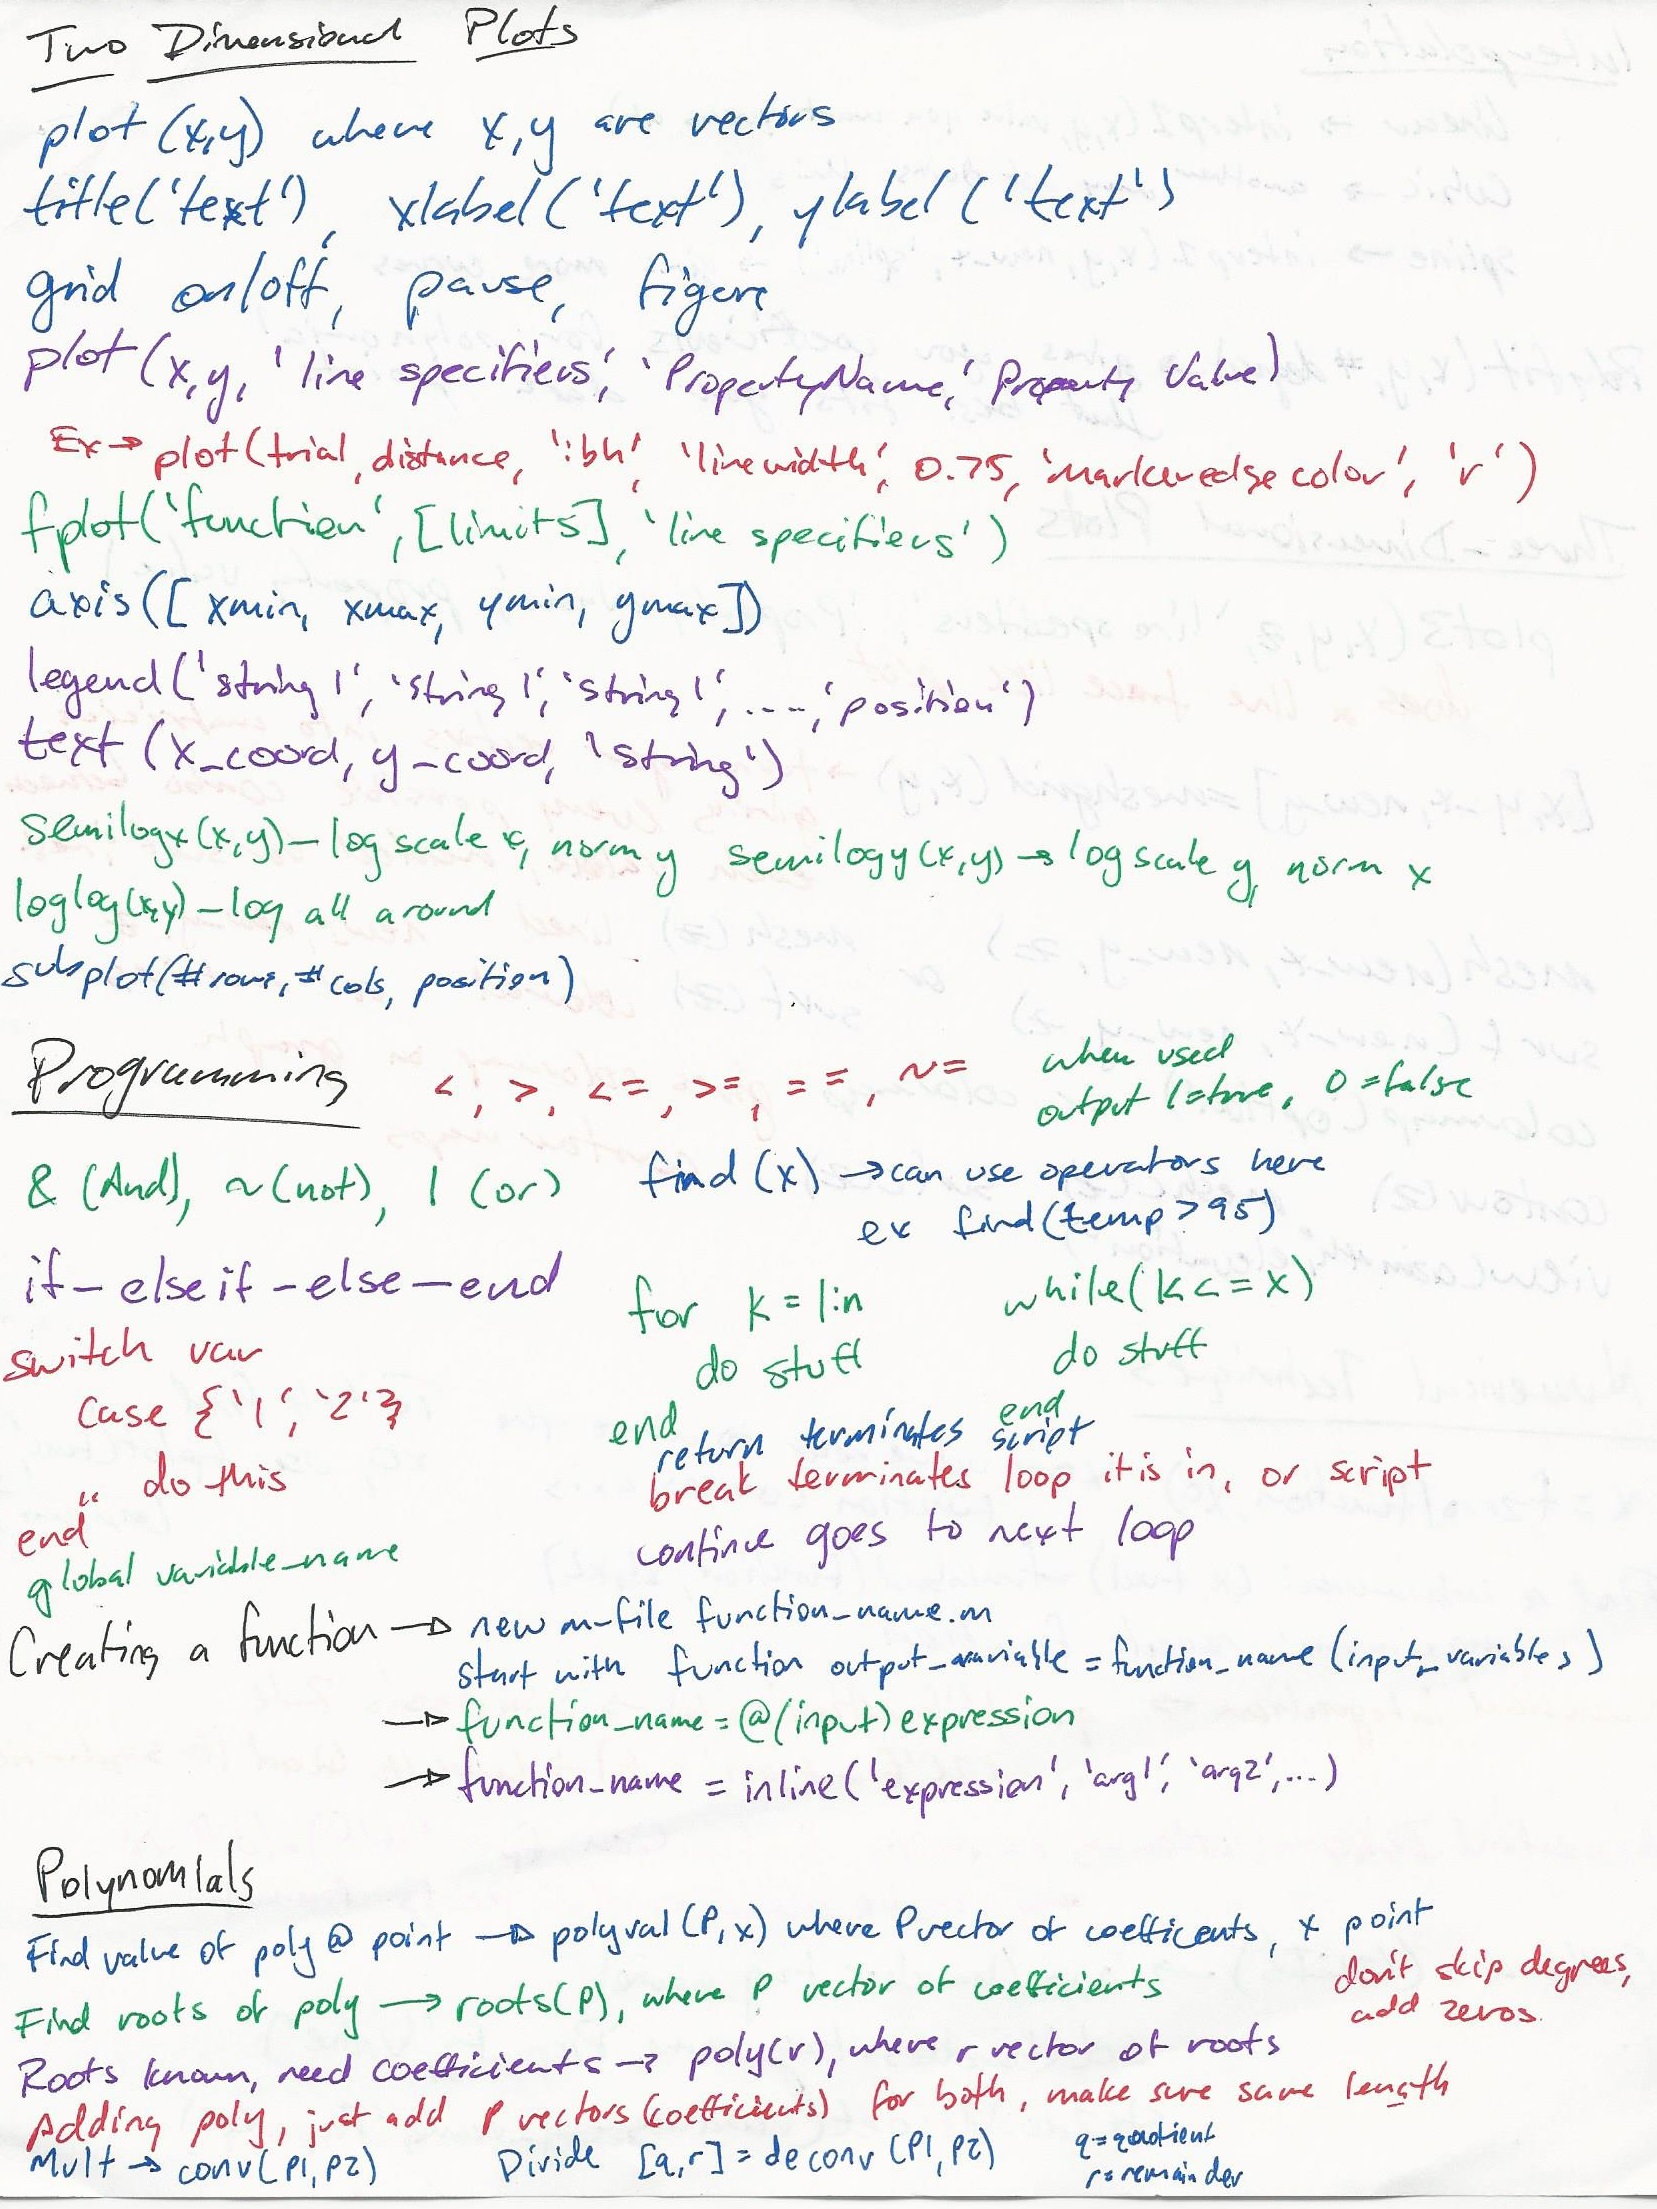 Two Dimensional Plots
plot (x,y) where x,y are vectors
title('text'), xlabel('text'), ylabel('text')
grid on/off, pause, figure
plot (x,y, 'line specifiers', 'PropertyName', Property Value)
Ex → plot(trial, distance, ':bh', 'linewidth', 0.75, 'markeredgecolor', 'r')
fplot('function', [limits], 'line specifiers')
axis([xmin, xmax, ymin, ymax])
legend('string1', 'string1', 'string1', ...., 'position')
text (x_coord, y_coord, 'string')
semilogx(x,y) – log scale x, norm y semilogy(x,y) → log scale y, norm x
loglog(x,y) – log all around
subplot(#rows, #cols, position)
Programming <, >, <=, >=, ==, ~= when used
output 1=true, 0=false
& (And), ~(not), | (or) find (x) → can use operators here
ex find(temp > 95)
if – elseif – else – end
for k = 1:n while(k <= x)
switch var do stuff do stuff
case {'1', '2'} end end
return terminates script
" do this break terminates loop it is in, or script
end continue goes to next loop
global variable_name
Creating a function → new m-file function_name.m
start with function output_variable = function_name (input_variables)
→ function_name = @(input) expression
→ function_name = inline('expression', 'arg1', 'arg2', ...)
Polynomials
Find value of poly @ point → polyval(P, x) where P vector of coefficents, x point
don't skip degrees,
Find roots of poly → roots(P), where P vector of coefficients
add zeros.
Roots known, need coefficients → poly(r), where r vector of roots
Adding poly, just add P vectors (coefficients) for both, make sure same length
Mult → conv(P1, P2) Divide [q,r] = deconv (P1, P2) q=quotient
r=remainder